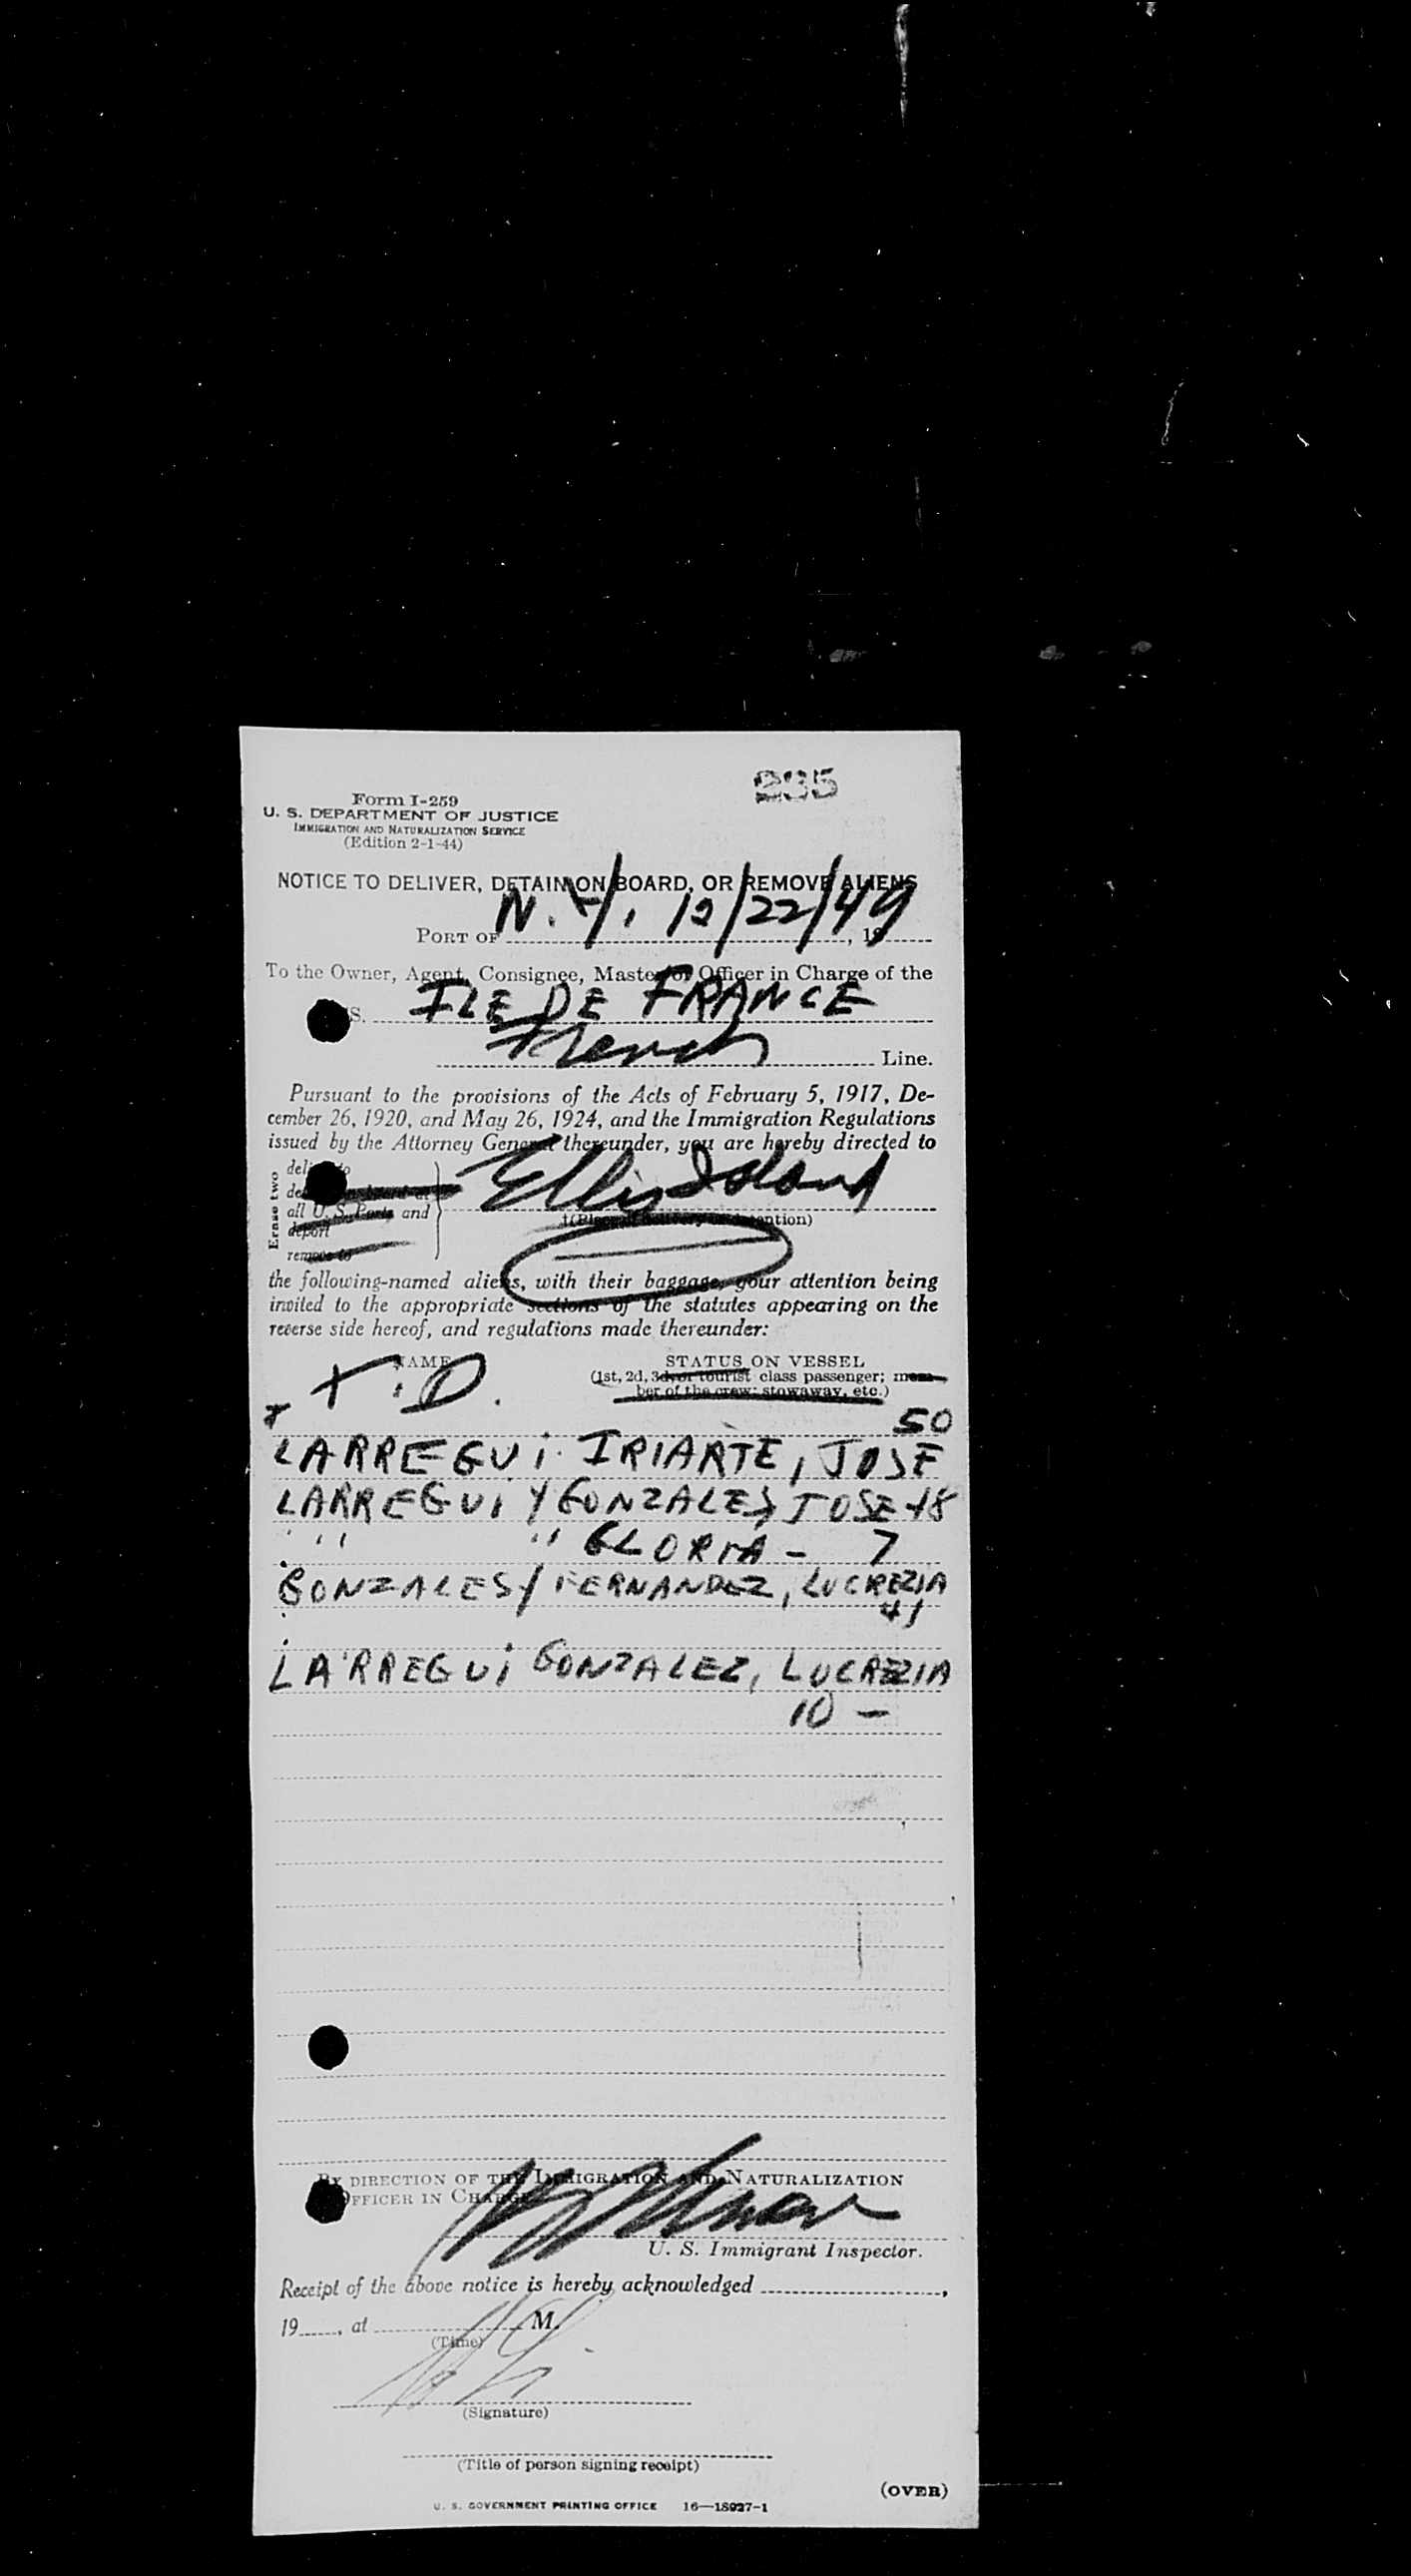 235
Form I-259
U. S. DEPARTMENT OF JUSTICE
IMMIGRATION AND NATURALIZATION SERVICE
(Edition 2-1-44)
NOTICE TO DELIVER, DETAIN ON BOARD, OR REMOVE ALIENS
PORT OF N.Y. 12/22/49, 19
To the Owner, Agent, Consignee, Master or Officer in Charge of the
S. ILE DE FRANCE
French Line.
Pursuant to the provisions of the Acts of February 5, 1917, De-
cember 26, 1920, and May 26, 1924, and the Immigration Regulations
issued by the Attorney General thereunder, you are hereby directed to
Erase two
deliver to
all U. S. Ports and
deport
remove to
Ellis Island
the following-named aliens, with their baggage, your attention being
invited to the appropriate sections of the statutes appearing on the
reverse side hereof, and regulations made thereunder:
NAME
STATUS ON VESSEL
(1st, 2d, 3d, or tourist class passenger; mem-
ber of the crew; stowaway, etc.)
T.D.
50
LARREGUI IRIARTE, JOSE
LARREGUI Y GONZALES JOSE 18
" " GLORIA - 7
GONZALES Y FERNANDEZ, LUCREZIA
41
LARREGUI GONZALEZ, LUCREZIA
10 -
BY DIRECTION OF THE IMMIGRATION AND NATURALIZATION
OFFICER IN CHARGE
U. S. Immigrant Inspector.
Receipt of the above notice is hereby acknowledged ,
19 , at M.
(Time)
(Signature)
(Title of person signing receipt)
(OVER)
U. S. GOVERNMENT PRINTING OFFICE 16—18927-1